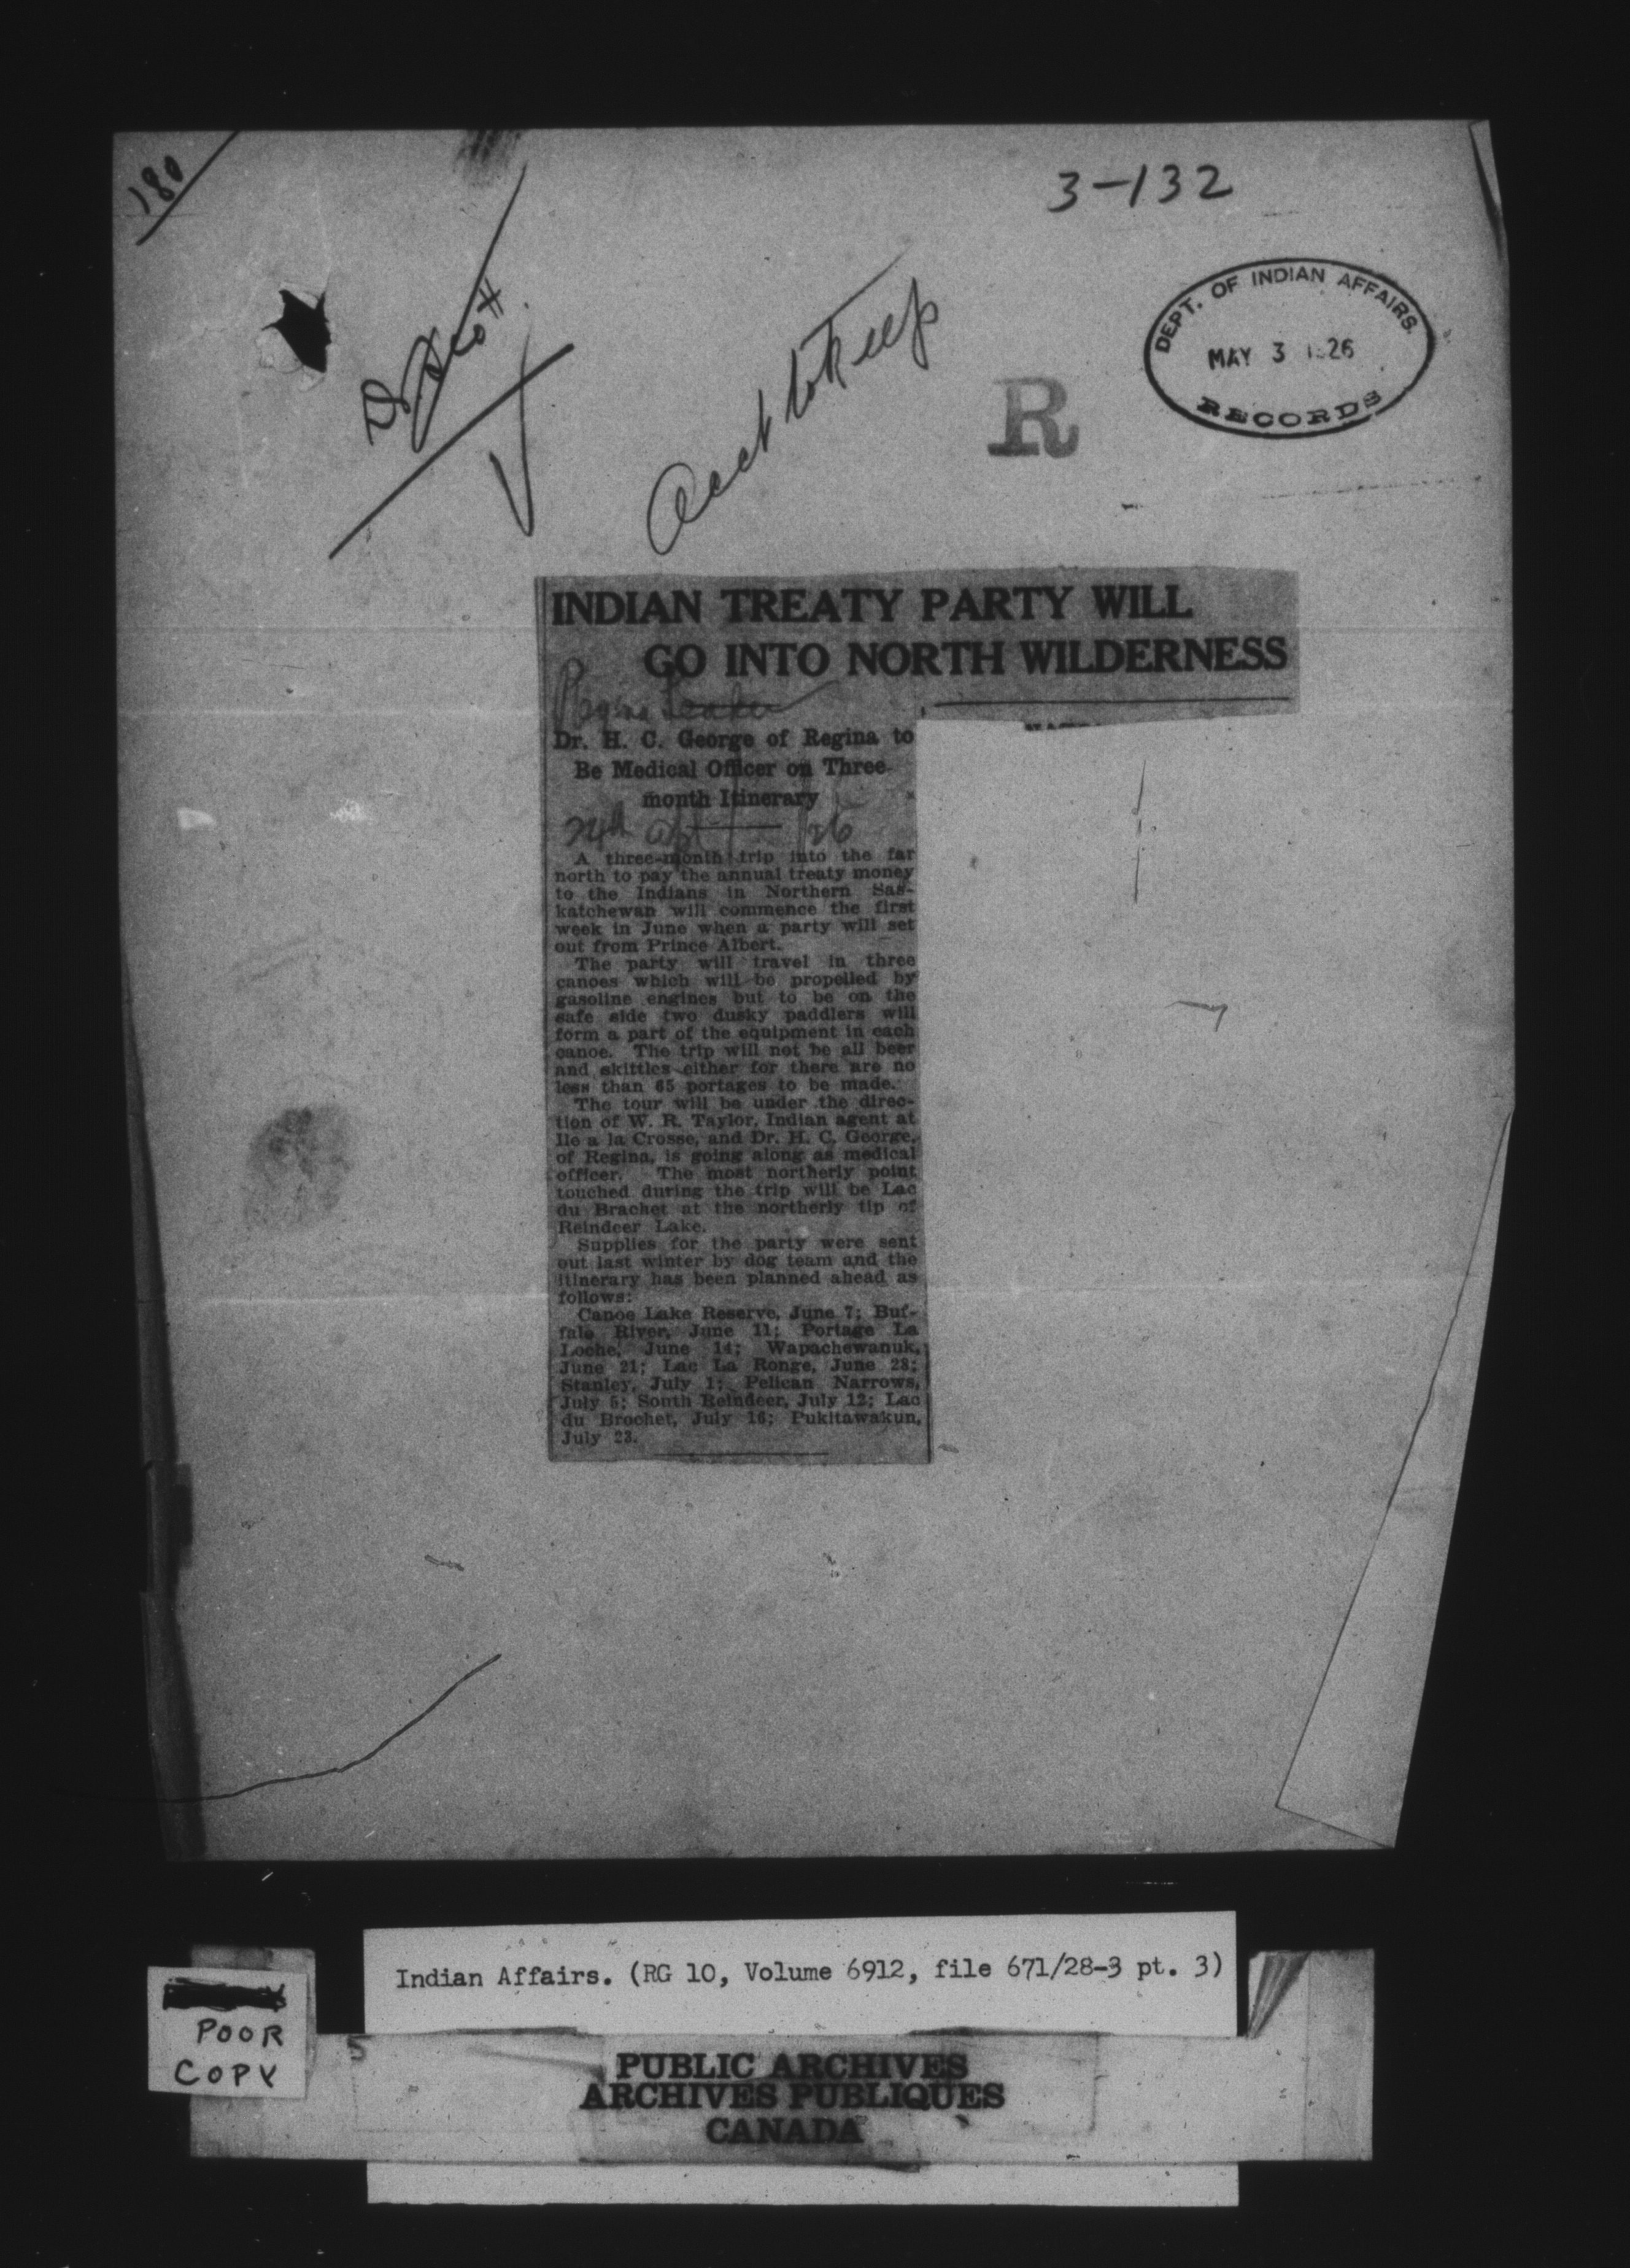 180
3-132
DEPT. OF INDIAN AFFAIRS.
MAY 3 1926
RECORDS
R
INDIAN TREATY PARTY WILL
GO INTO NORTH WILDERNESS
Regina Leader
Dr. H. C. George of Regina to
Be Medical Officer on Three-
month Itinerary
24th Apl /26
A three-month trip into the far
north to pay the annual treaty money
to the Indians in Northern Sas-
katchewan will commence the first
week in June when a party will set
out from Prince Albert.
The party will travel in three
canoes which will be propelled by
gasoline engines but to be on the
safe side two dusky paddlers will
form a part of the equipment in each
canoe. The trip will not be all beer
and skittles either for there are no
less than 65 portages to be made.
The tour will be under the direc-
tion of W. R. Taylor, Indian agent at
Ile a la Crosse, and Dr. H. C. George,
of Regina, is going along as medical
officer. The most northerly point
touched during the trip will be Lac
du Brachet at the northerly tip of
Reindeer Lake.
Supplies for the party were sent
out last winter by dog team and the
itinerary has been planned ahead as
follows:
Canoe Lake Reserve, June 7; Buf-
falo River, June 11; Portage La
Loche, June 14; Wapachewanuk,
June 21; Lac La Ronge, June 28;
Stanley, July 1; Pelican Narrows,
July 5; South Reindeer, July 12; Lac
du Brochet, July 16; Pukitawakun,
July 23.
Indian Affairs. (RG 10, Volume 6912, file 671/28-3 pt. 3)
POOR
COPY
PUBLIC ARCHIVES
ARCHIVES PUBLIQUES
CANADA